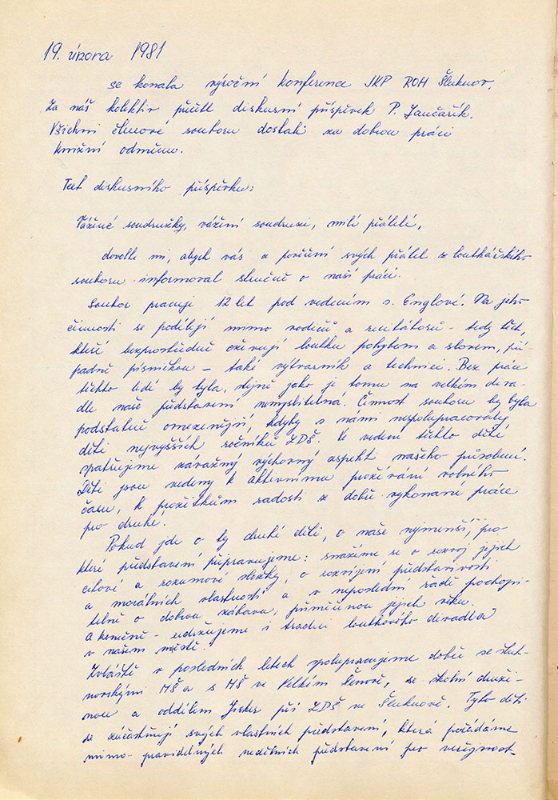 19. února 1981
se konala výroční konference SKP ROH Šluknov.
Za náš kolektiv přečetl diskusní příspěvek P. Jančařík.
Všichni členové souboru dostali za dobrou práci
knižní odměnu.
Text diskusního příspěvku:
Vážené soudružky, vážení soudruzi, milí přátelé,
dovolte mi, abych vás z pověření svých přátel z loutkářského
souboru informoval stručně o naší práci.
Soubor pracuje 12 let pod vedením s. Englové. Na jeho
činnosti se podílejí mimo vodičů a recitátorů - tedy těch,
kteří bezprostředně oživují loutku pohybem a slovem, pří-
padně písničkou - také výtvarník a technici. Bez práce
těchto lidí by byla, stejně jako je tomu na velkém diva-
dle naše představení nemyslitelná. Činnost souboru by byla
podstatně omezenější, kdyby s námi nespolupracovaly
děti nejvyšších ročníků ZDŠ. Ve vedení těchto dětí
spatřujeme závažný výchovný aspekt našeho působení.
Děti jsou vedeny k aktivnímu prožívání volného
času, k prožitkům radosti z dobře vykonané práce
pro druhé.
Pokud jde o ty druhé děti, o naše nejmenší, pro
které představení připravujeme: snažíme se o rozvoj jejich
citové a rozumové složky, o rozvíjení představivosti
a morálních vlastností a v neposlední řadě pochopi-
telně o dobrou zábavu, přiměřenou jejich věku.
A konečně - udržujeme i tradici loutkového divadla
v našem městě.
Zvláště v posledních letech spolupracujeme dobře se šluk-
novskými MŠ a s MŠ ve Velkém Šenově, se školní druži-
nou a oddílem Jisker při ZDŠ ve Šluknově. Tyto děti
se zúčastňují svých vlastních představení, která pořádáme
mimo pravidelných nedělních představení pro veřejnost.